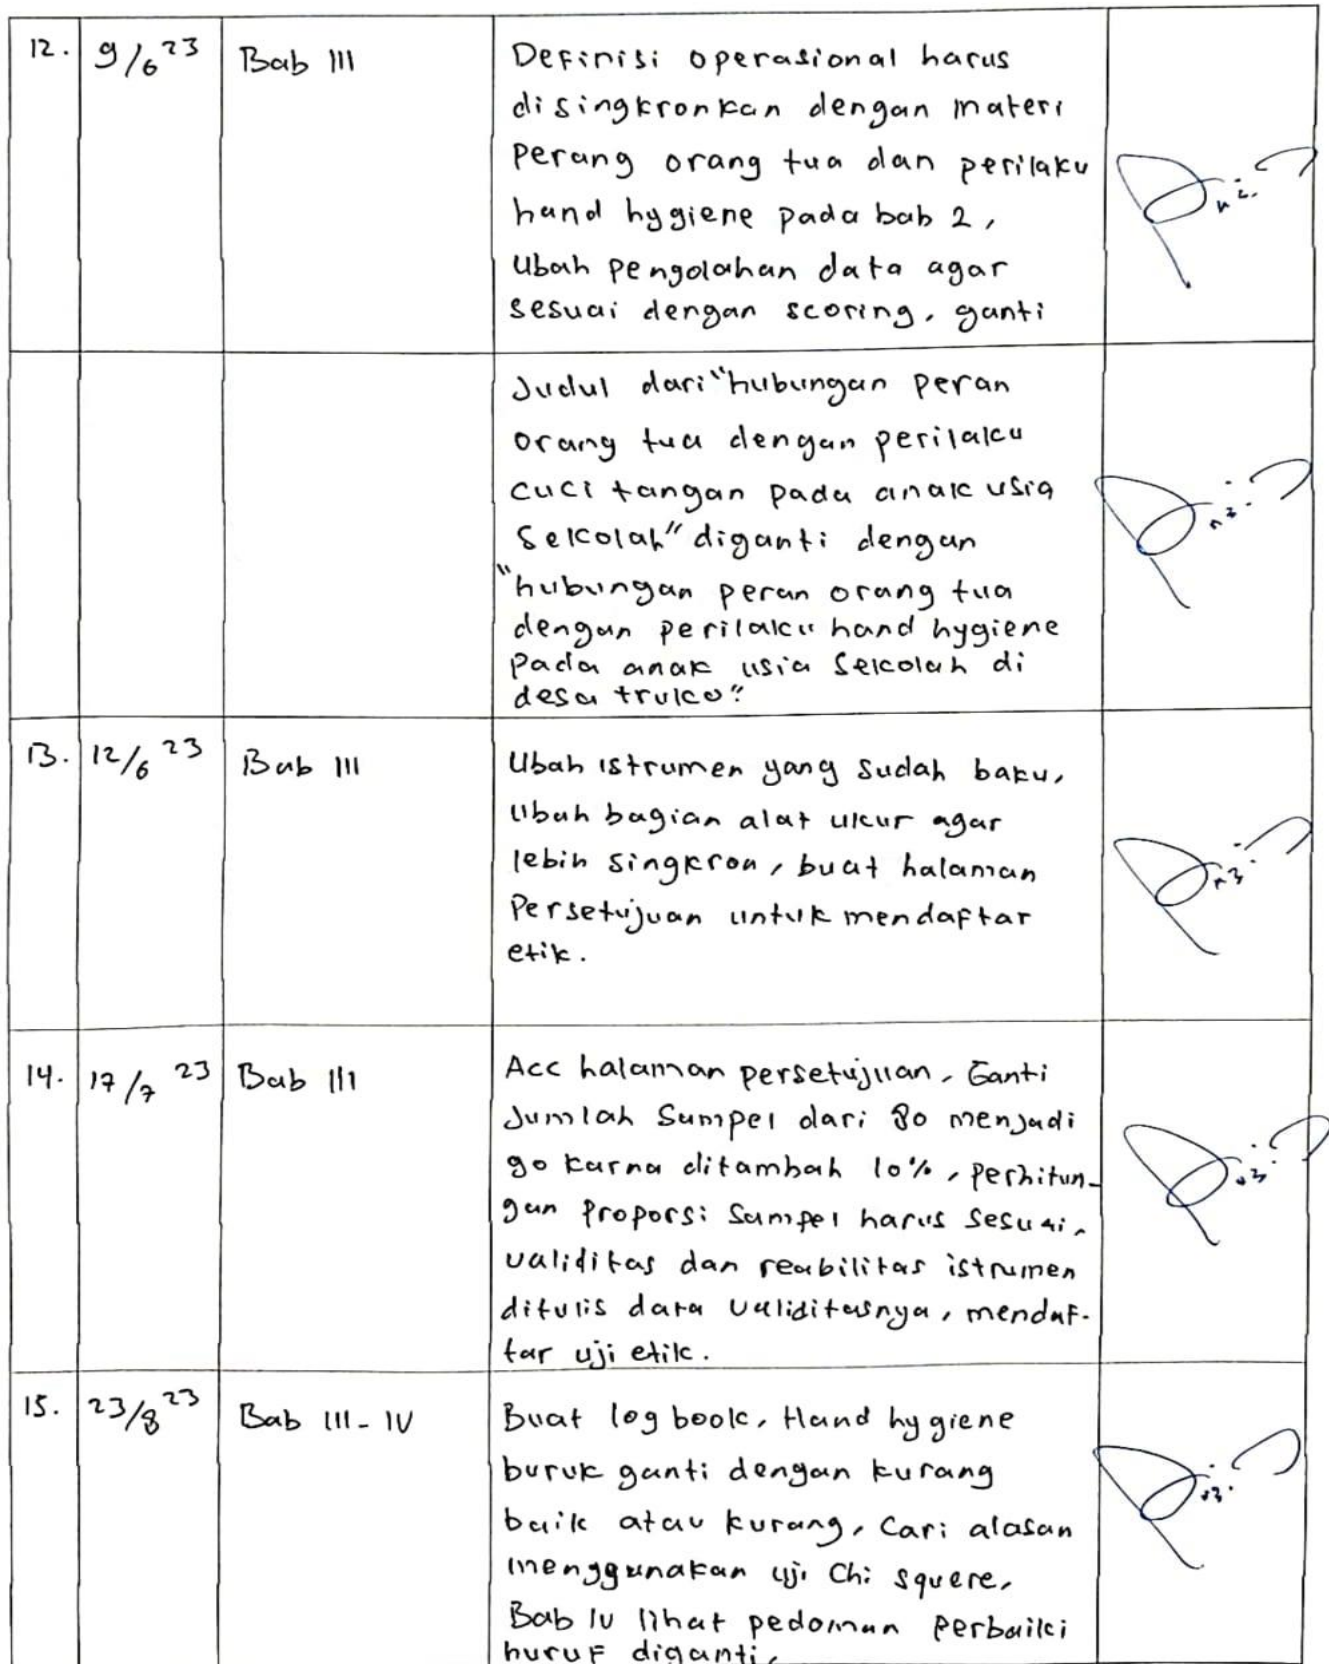 12. 9/6 23 Bab III Definisi operasional harus
disingkronkan dengan materi
perang orang tua dan perilaku
hand hygiene pada bab 2,
Ubah pengolahan data agar
sesuai dengan scoring, ganti
Judul dari "hubungan peran
orang tua dengan perilaku
cuci tangan pada anak usia
Sekolah" diganti dengan
"hubungan peran orang tua
dengan perilaku hand hygiene
pada anak usia Sekolah di
desa truko"
13. 12/6 23 Bab III Ubah istrumen yang sudah baku,
Ubah bagian alat ukur agar
lebih singkron, buat halaman
Persetujuan untuk mendaftar
etik.
14. 17/7 23 Bab III Acc halaman persetujuan, Ganti
Jumlah Sampel dari 80 menjadi
90 karna ditambah 10%, perhitun-
gan Proporsi Sampel harus sesuai,
validitas dan reabilitas istrumen
ditulis data validitasnya, mendaf-
tar uji etik.
15. 23/8 23 Bab III - IV Buat log book, Hand hygiene
buruk ganti dengan kurang
baik atau kurang, Cari alasan
menggunakan uji Chi squere,
Bab IV lihat pedoman perbaiki
huruf diganti,